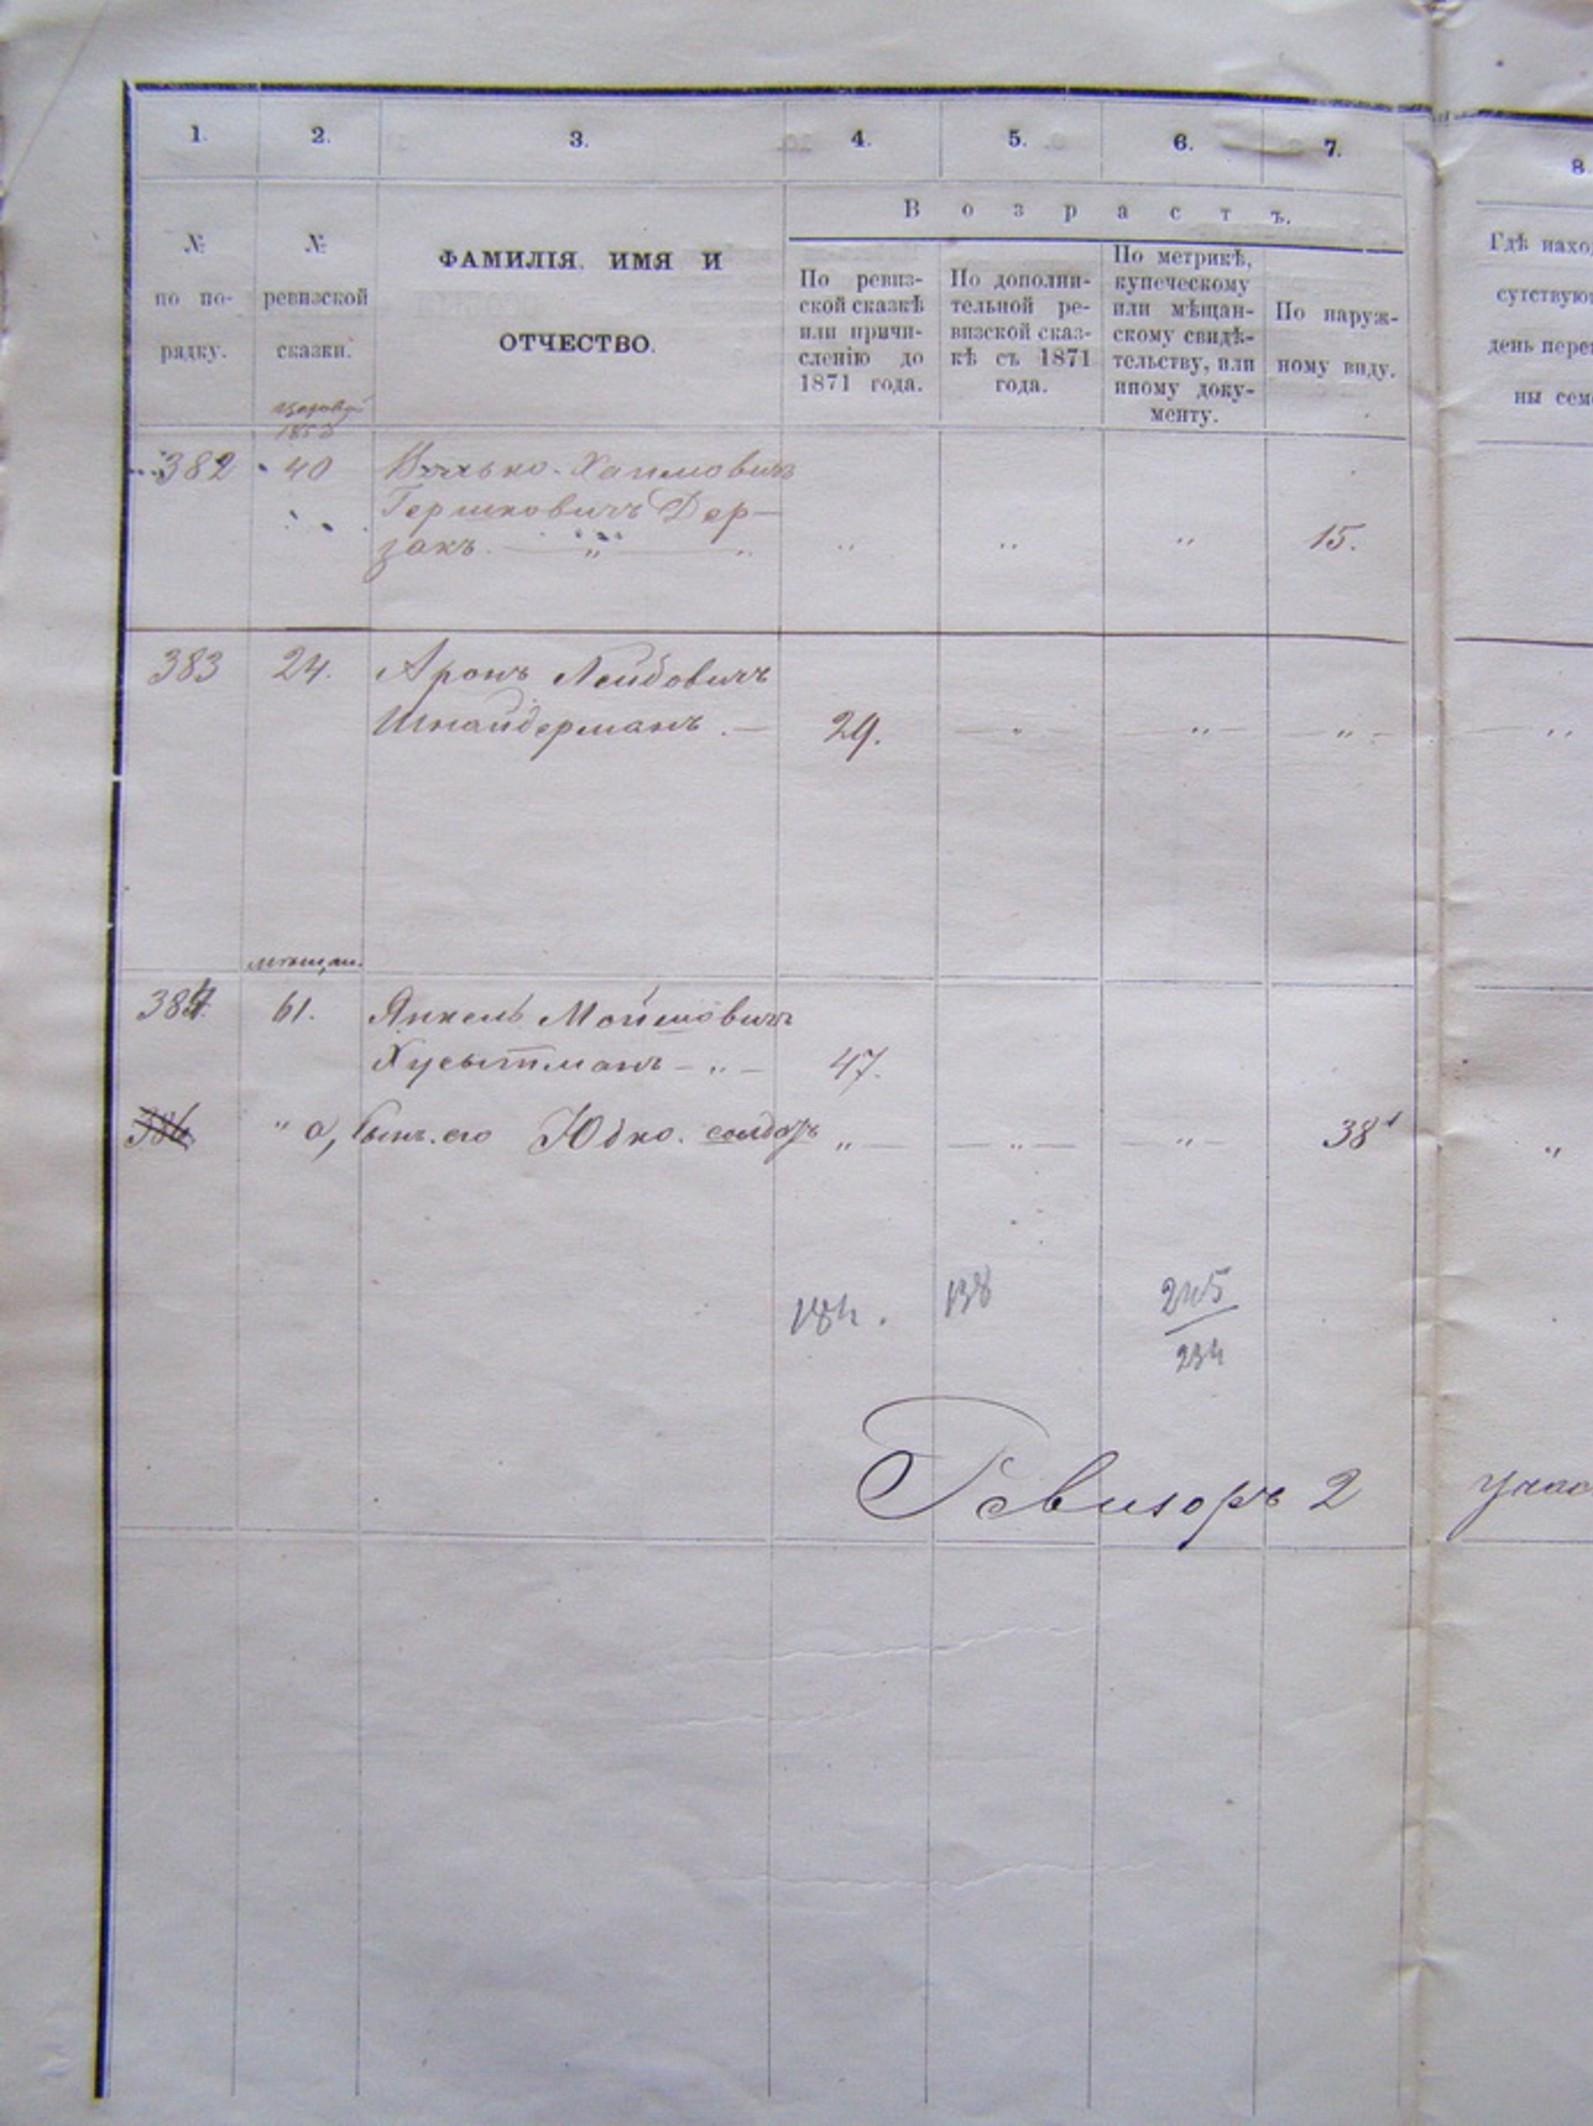 1. 2. 3. 4. 5. 6. 7. 8
В о з р а с т ъ.
№ по по-рядку.
№ ревизской сказки.
ФАМИЛІЯ, ИМЯ И
ОТЧЕСТВО.
По ревиз-
ской сказкѣ
или причи-
сленію до
1871 года.
По дополни-
тельной ре-
визской сказ-
кѣ съ 1871
года.
По метрикѣ,
купеческому
или мѣщан-
скому свидѣ-
тельству, или
иному доку-
менту.
По наруж-
ному виду.
Гдѣ нахо
сутствую
день пере
ны сем
382 40 Хаимовичъ
Гершковичъ Дер-
закъ. „ „ „ „ „ 15.
383 24. Аронъ Лейбовичъ
Шнайдерманъ. — 29. „ „ „ „
мѣщан.
384 61. Янкель Мойшовичъ
Хусытманъ — „ — 47.
386 „ а, сынъ его Юдко. солдатъ „ „ „ 38 „
184. 138 245
234
Ревизоръ 2 учас